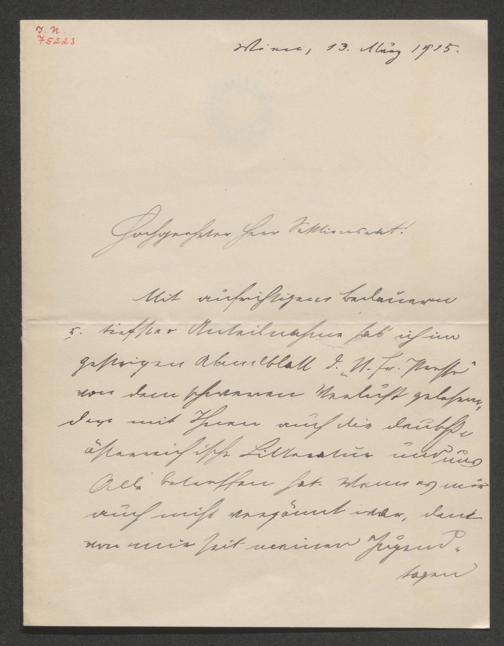 I. N.
75223
Wien, 13. März 1915.
Hochgeehrter Herr Sektionsrat!
Mit aufrichtigem Bedauern
u. tiefster Anteilnahme hab ich im
gestrigen Abendblatt d. „N. Fr. Presse"
von dem schweren Verlust gelesen,
der mit Ihnen auch die deutsch-
österreichische Litteratur und uns
Alle betroffen hat. Wenn es mir
auch nicht vergönnt war, den
von mir seit meinen Jugend-
tagen